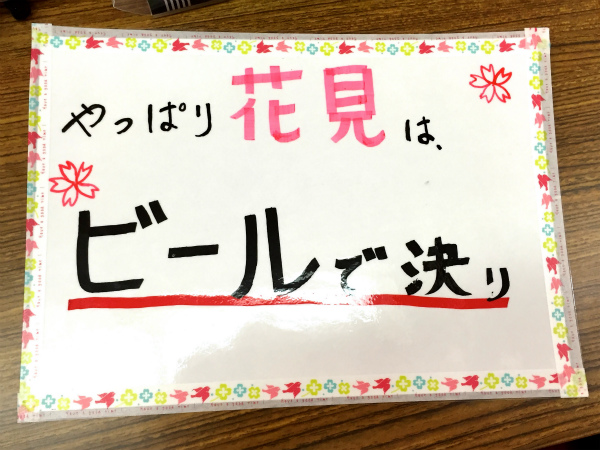 やっぱり花見は、
ビールで決り